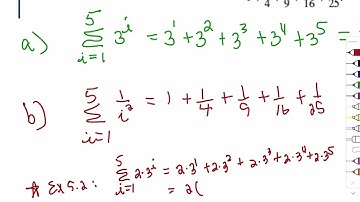 4 9 16 25
a) 5 ∑ i=1 3^i = 3^1 + 3^2 + 3^3 + 3^4 + 3^5 =
b) 5 ∑ i=1 1/i^2 = 1 + 1/4 + 1/9 + 1/16 + 1/25
* Ex 5.2: 5 ∑ i=1 2·3^i = 2·3^1 + 2·3^2 + 2·3^3 + 2·3^4 + 2·3^5
= 2(